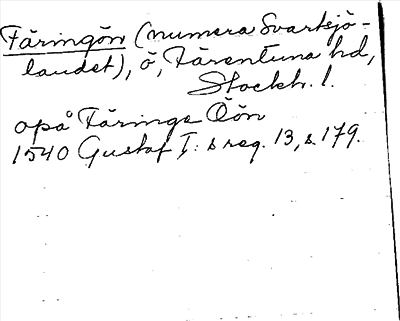 Färingön (numera Svartsjö-
landet), ö, Färentuna hd,
Stockh. l.
opå Färinge Öön
1540 Gustaf I:s reg. 13, s. 179.